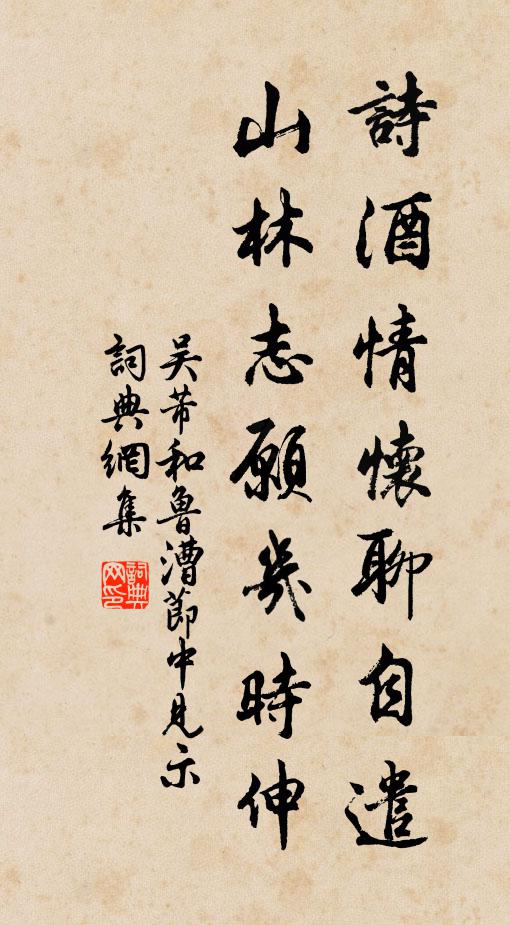 詩酒情懷聊自遣
山林志願幾時伸
吴芾和魯漕節中見示
詞典網集
詞典网印